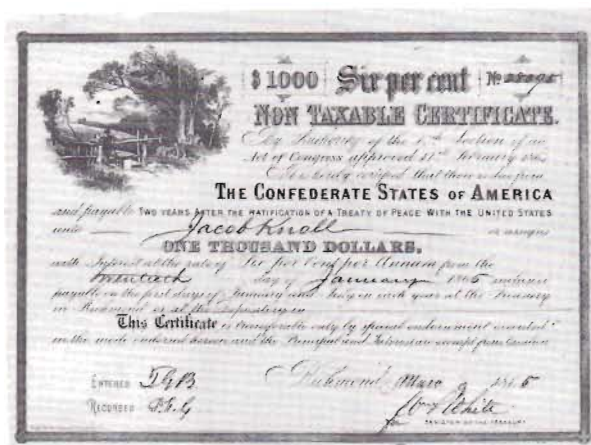 $ 1000 Six per cent No.
NON TAXABLE CERTIFICATE.
By Authority of the Section of an
Act of Congress approved 17th February 186
hereby certified that there is due from
THE CONFEDERATE STATES OF AMERICA
and payable TWO YEARS AFTER THE RATIFICATION OF A TREATY OF PEACE WITH THE UNITED STATES
unto Jacob Knoll or assigns
ONE THOUSAND DOLLARS,
with Interest at the rate of Six per Cent per Annum from the
twentieth day of January 1865 inclusive
payable on the first days of January and July in each year at the Treasury
in Richmond or at the Depository in
This Certificate is transferable only by special endorsement executed
in the mode endorsed hereon and the Principal and Interest are exempt from taxation
ENTERED Richmond, 9 1865
RECORDED White
REGISTER OF THE TREASURY